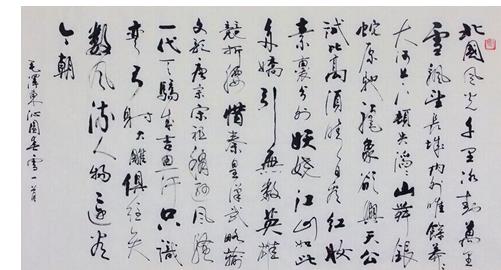 北國風光千里冰封萬里
雪飄望長城內外唯餘莽々
大河上下頓失滔々山舞銀
蛇原馳蠟象欲與天公
試比高須晴日看紅妝
素裹分外妖嬈江山如此
多嬌引無數英雄
競折腰惜秦皇漢武略輸
文彩唐宗宋祖稍遜風騷
一代天驕成吉思汗只識
彎弓射大雕俱往矣
數風流人物還看
今朝
毛澤東沁園春雪